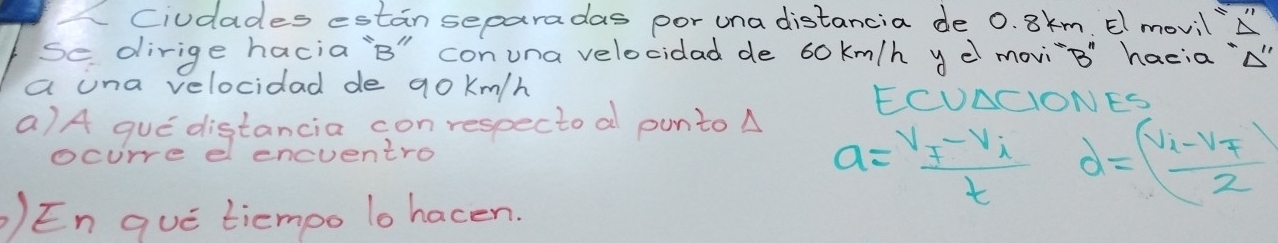 2 Ciudades están separadas por una distancia de 0.8km. El movil "A"
se dirige hacia "B" con una velocidad de 60 Km/h y el movi "B" hacia "A"
a una velocidad de 90 Km/h
ECUACIONES
a) A qué distancia con respecto al punto A
ocurre el encuentro
a = (V_F - V_i) / t d = (V_i - V_F / 2)
b) En qué tiempo lo hacen.